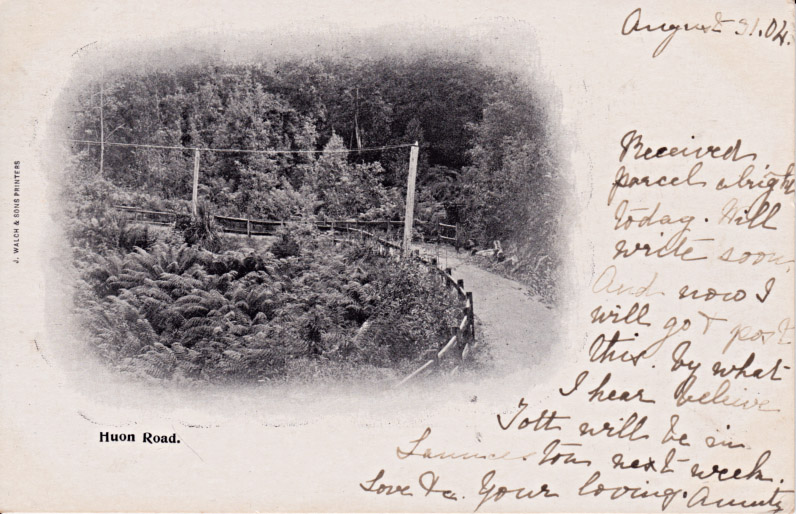 August 31.04.
J. WALCH & SONS PRINTERS
Received
parcel alright
today. Will
write soon,
And now I
will go & post
this. by what
I hear believe
Tott will be in
Launceston next week.
Love &c. Your loving. Aunty
Huon Road.